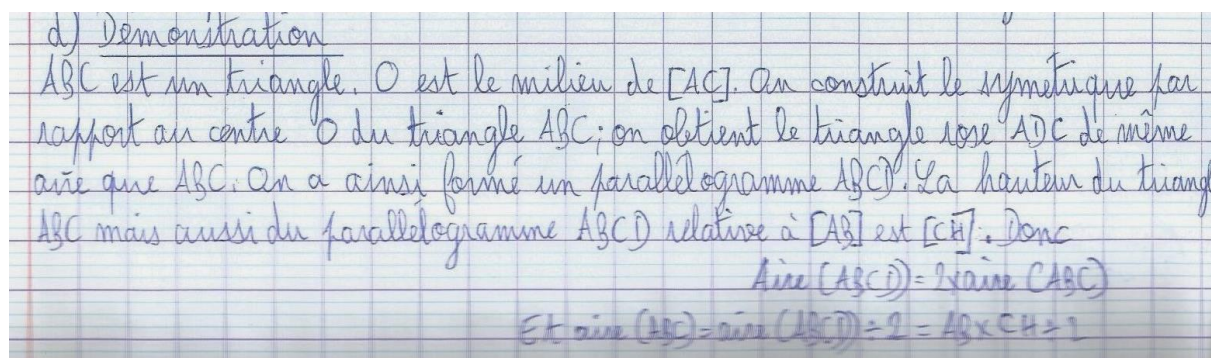 d) Démonstration
ABC est un triangle. O est le milieu de [AC]. On construit le symétrique par
rapport au centre O du triangle ABC; on obtient le triangle rose ADC de même
aire que ABC. On a ainsi formé un parallélogramme ABCD. La hauteur du triangl
ABC mais aussi du parallélogramme ABCD relative à [AB] est [CH]. Donc
Aire (ABCD) = 2 x aire (ABC)
Et aire (ABC) = aire (ABCD) ÷ 2 = AB x CH ÷ 2